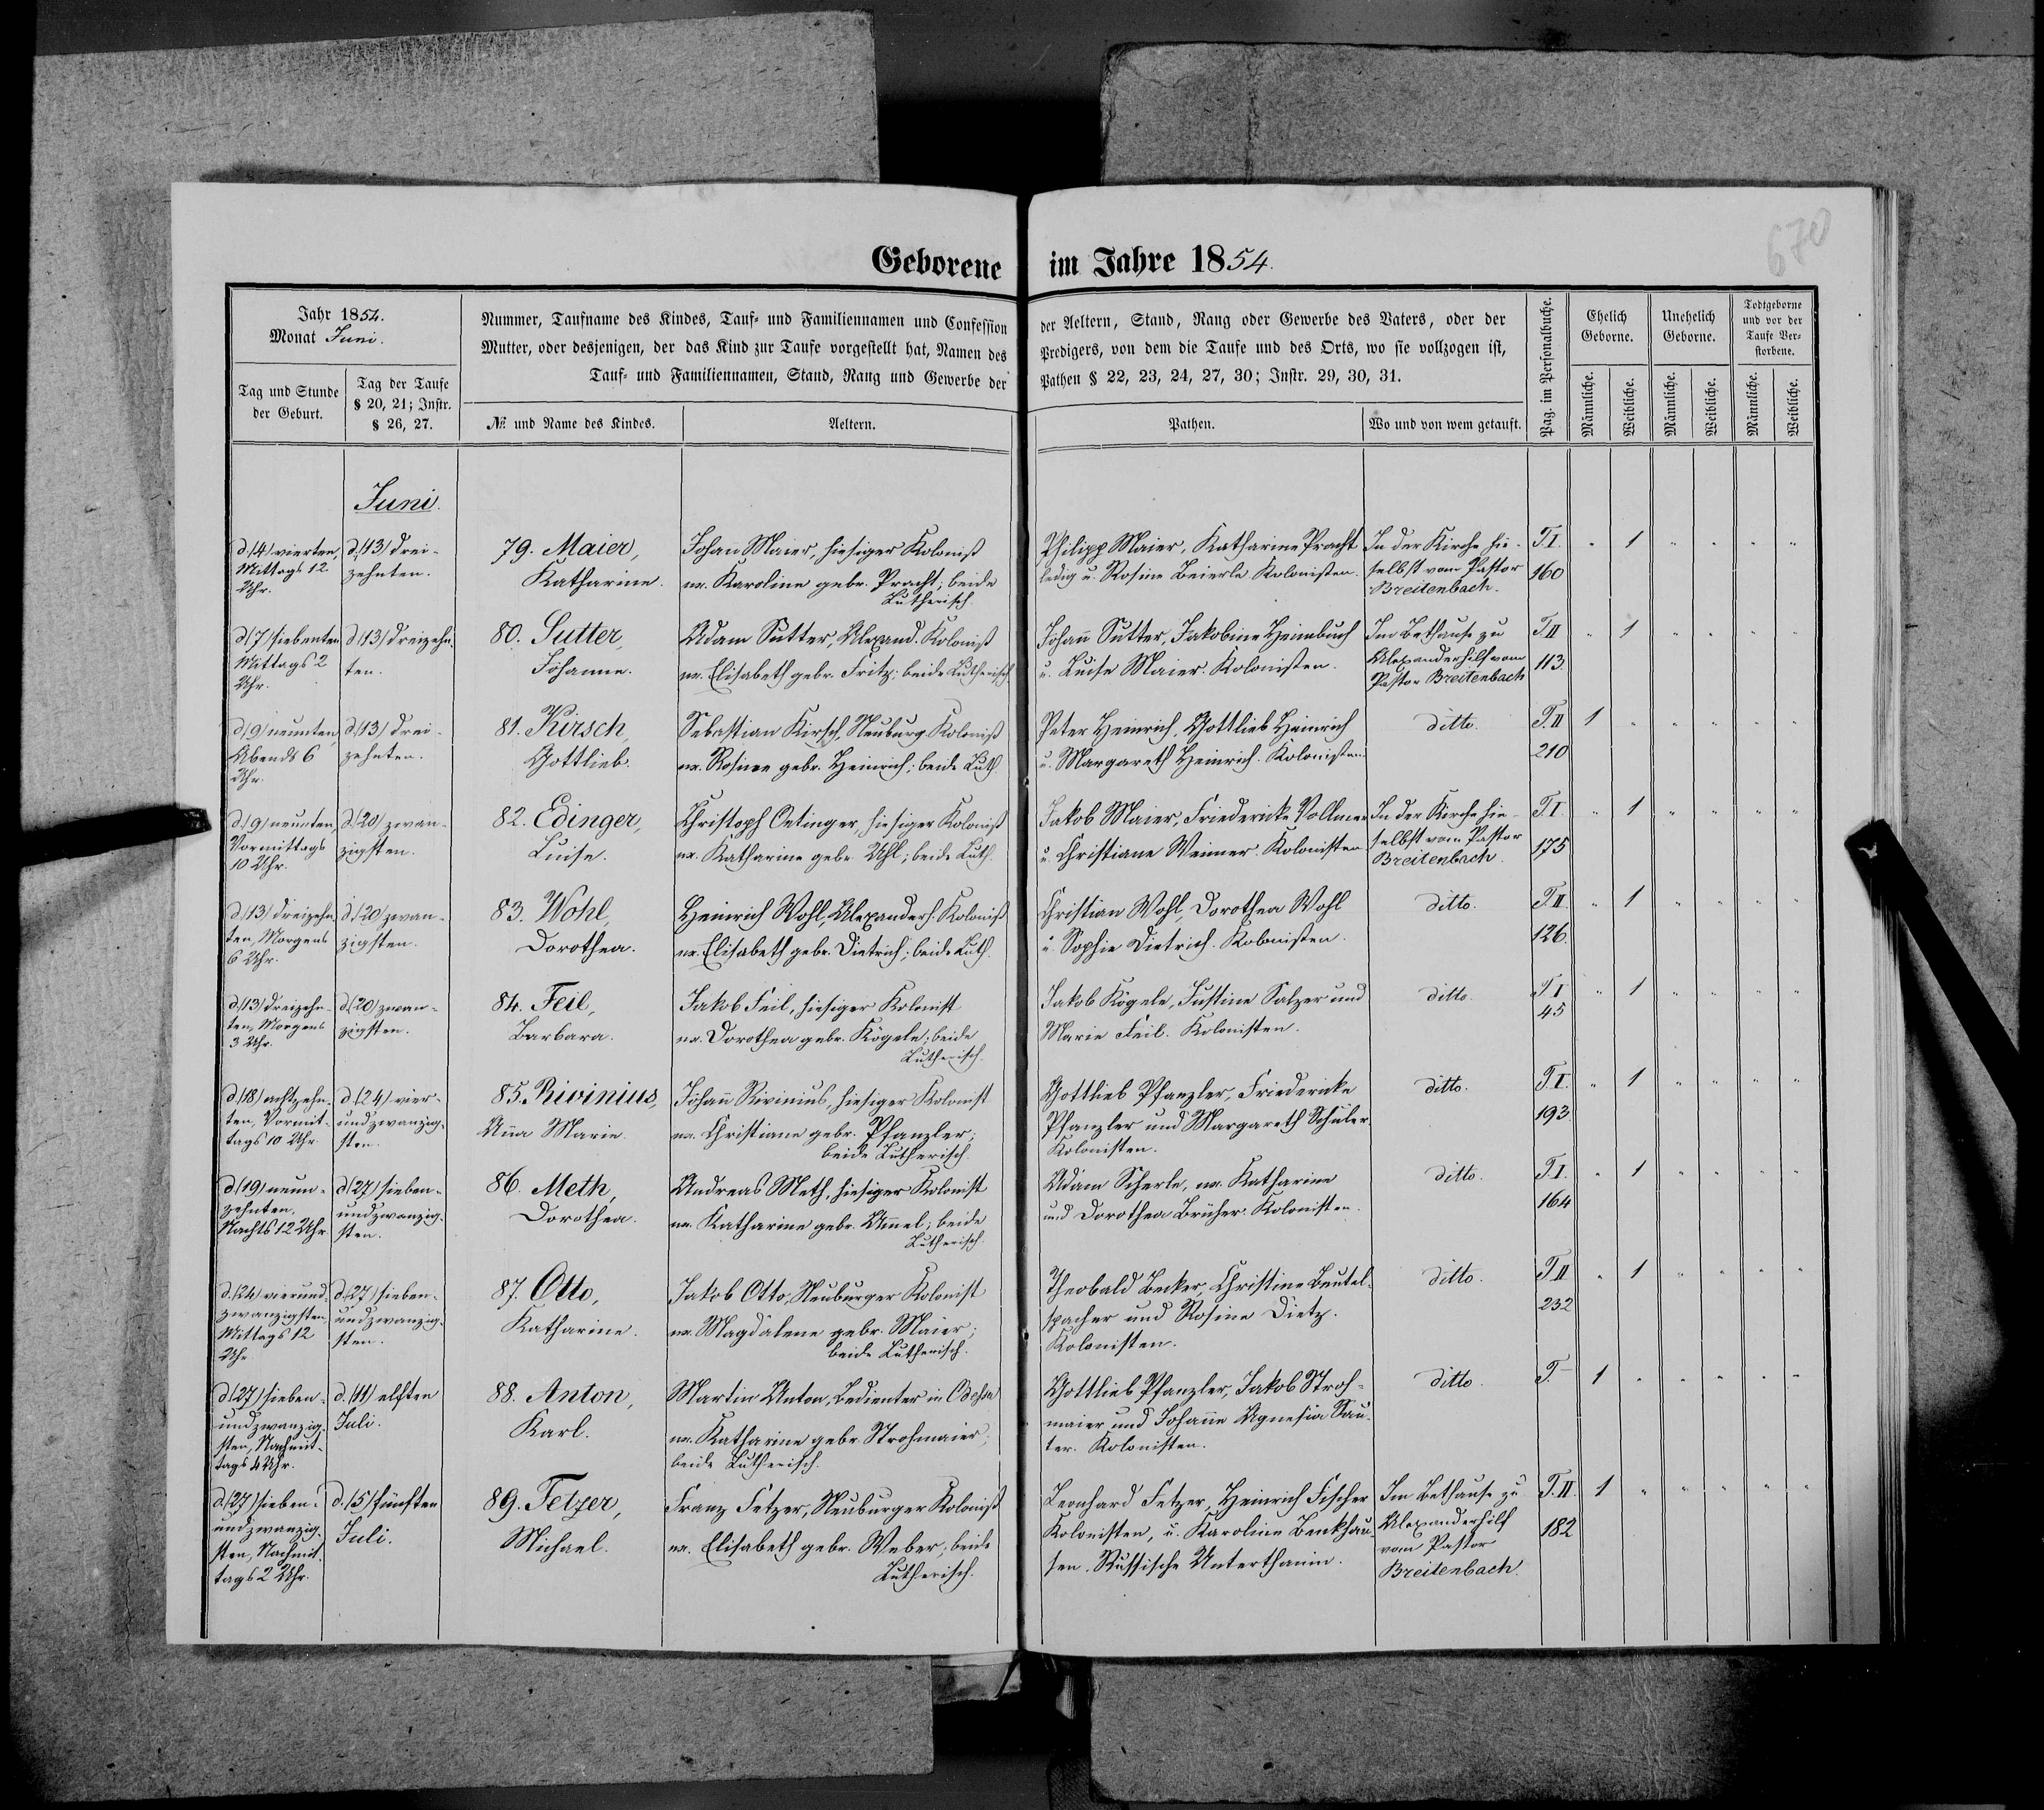 670
Geborene im Jahre 1854.
Jahr 1854.
Monat Juni.
Tag und Stunde
der Geburt.
Tag der Taufe
§ 20, 21; Instr.
§ 26, 27.
Nummer, Taufname des Kindes, Tauf- und Familiennamen und Confession
Mutter, oder desjenigen, der das Kind zur Taufe vorgestellt hat, Namen des
Tauf- und Familiennamen, Stand, Rang und Gewerbe der
№ und Name des Kindes.
Aeltern.
der Aeltern, Stand, Rang oder Gewerbe des Vaters, oder der
Predigers, von dem die Taufe und des Orts, wo sie vollzogen ist,
Pathen § 22, 23, 24, 27, 30; Instr. 29, 30, 31.
Pathen.
Wo und von wem getauft.
Pag. im Personalbuche.
Ehelich
Geborne.
Unehelich
Geborne.
Todtgeborne
und vor der
Taufe Ver-
storbene.
Männliche.
Weibliche.
Männliche.
Weibliche.
Männliche.
Weibliche.
Juni.
d. (4) vierten,
Mittags 12
Uhr.
d. (13) drei-
zehnten.
79. Maier,
Katharine.
Johan Maier, hiesiger Kolonist
ux. Karoline gebr. Pracht; beide
Lutherisch.
Philipp Maier, Katharine Pracht
ledig u. Rosine Beierle Kolonisten.
In der Kirche hie-
selbst vom Pastor
Breitenbach.
T. I.
160
" 1 " " " "
d. (7) siebenten
Mittags 2
Uhr.
d. (13) dreizehn-
ten.
80. Sutter,
Johanne.
Adam Sutter, Alexand. Kolonist
ux. Elisabeth gebr. Fritz; beide Lutherisch
Johann Sutter, Jakobine Heimbuch
u. Luise Maier. Kolonisten.
Im Bethause zu
Alexanderhilf vom
Pastor Breitenbach
T. II
113
" 1 " " " "
d. (9) neunten,
Abends 6
Uhr.
d. (13) drei-
zehnten.
81. Kirsch,
Gottlieb.
Sebastian Kirsch, Neuburg. Kolonist
ux. Rosine gebr. Heinrich; beide Luth.
Peter Heinrich, Gottlieb Heinrich
u. Margareth Heinrich. Kolonisten.
ditto.
T. II
210
1 " " " " "
d. (9) neunten,
Vormittags
10 Uhr.
d. (20) zwan-
zigsten.
82. Edinger,
Luise.
Christoph Oetinger, hiesiger Kolonist
ux. Katharine gebr. Uhl; beide Luth.
Jakob Maier, Friedericke Vollmer
u. Christiane Weimer. Kolonisten
In der Kirche hie-
selbst vom Pastor
Breitenbach.
T. I.
175
" 1 " " " "
d. (13) dreizehn-
ten, Morgens
6 Uhr.
d. (20) zwan-
zigsten.
83. Wohl,
Dorothea.
Heinrich Wohl, Alexanderh. Kolonist
ux. Elisabeth gebr. Dietrich; beide Luth.
Christian Wohl, Dorothea Wohl
u. Sophie Dietrich. Kolonisten.
ditto.
T. II.
126.
" 1 " " " "
d. (13) dreizehn-
ten, Morgens
3 Uhr.
d. (20) zwan-
zigsten.
84. Feil,
Barbara.
Jakob Feil, hiesiger Kolonist
ux. Dorothea gebr. Kögele; beide
Lutherisch.
Jakob Kögele, Justine Salzer und
Marie Feil. Kolonisten.
ditto.
T. I
45
" 1 " " " "
d. (18) achtzehn-
ten, Vormit-
tags 10 Uhr.
d. (24) vier-
undzwanzig-
sten.
85. Rivinius,
Anna Marie.
Johann Rivinius, hiesiger Kolonist
ux. Christiane gebr. Pfanzler;
beide Lutherisch.
Gottlieb Pfanzler, Friedericke
Pfanzler und Margareth Schüler.
Kolonisten.
ditto.
T. I.
193
" 1 " " " "
d. (19) neun-
zehnten,
Nachts 12 Uhr.
d. (27) sieben-
undzwanzig-
sten.
86. Meth,
Dorothea.
Andreas Meth, hiesiger Kolonist
ux. Katharine gebr. Ammel; beide
Lutherisch.
Adam Scherle, ux. Katharine
und Dorothea Brücher. Kolonisten.
ditto.
T. I.
164
" 1 " " " "
d. (24) vierund-
zwanzigsten,
Mittags 12
Uhr.
d. (27) sieben-
undzwanzig-
sten.
87. Otto,
Katharine.
Jakob Otto, Neuburger Kolonist
ux. Magdalene gebr. Maier;
beide Lutherisch.
Theobald Becker, Christine Beutel-
spacher und Rosine Dietz.
Kolonisten.
ditto.
T. II
232
" 1 " " " "
d. (27) sieben-
undzwanzig-
sten, Nachmit-
tags 4 Uhr.
d. (11) elften
Juli.
88. Anton,
Karl.
Martin Anton, Bedienter in Odessa
ux. Katharine gebr. Strohmaier;
beide Lutherisch.
Gottlieb Pfanzler, Jakob Stroh-
maier und Johanne Agnesia Sau-
ter. Kolonisten.
ditto.
T. -
1 " " " " "
d. (27) sieben-
undzwanzig-
sten, Nachmit-
tags 2 Uhr.
d. (5) fünften
Juli.
89. Fetzer,
Michael.
Franz Fetzer, Neuburger Kolonist
ux. Elisabeth gebr. Weber; beide
Lutherisch.
Leonhard Fetzer, Heinrich Fischer
Kolonisten, u. Karoline Benkhau-
sen. Russische Unterthanin.
Im Bethause zu
Alexanderhilf
vom Pastor
Breitenbach.
T. II.
182
1 " " " " "